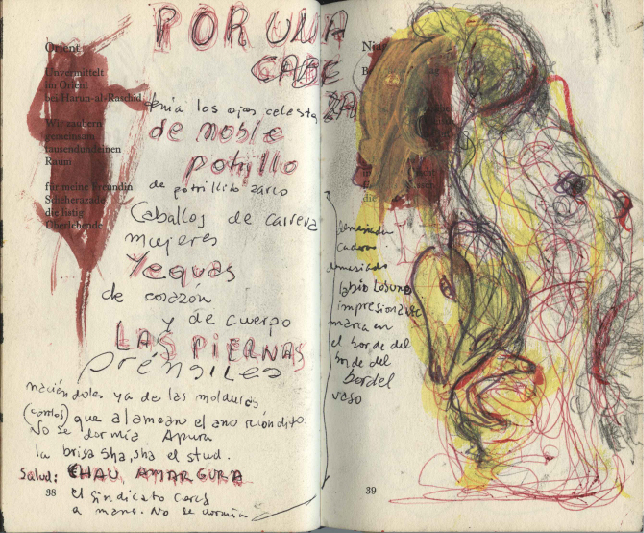 Orient
Unvermittelt
im Orient
bei Harun-al-Raschid
Wir wandern
gemeinsam
tausendundeinen
Raani
für meine Freundin
Scheherazade
die listig
Überlebende
POR UNA
CABE
ZA
tenía los ojos celesta
de noble
potrillo
de potrillito zarco
Caballos de carrera
mujeres
Yeguas
de corazón
y de cuerpo
LAS PIERNAS
prénsiles
naciéndoles ya de las molduras
que alamean el ano riondito
No se dormía Apura
la brisa sha, sha el stud.
Salud: CHAU AMARGURA
el sindicato
a mano. No se dormía
38
demasiado
labio
impresionante
marca en
el borde del
borde del
bordel
vaso
39